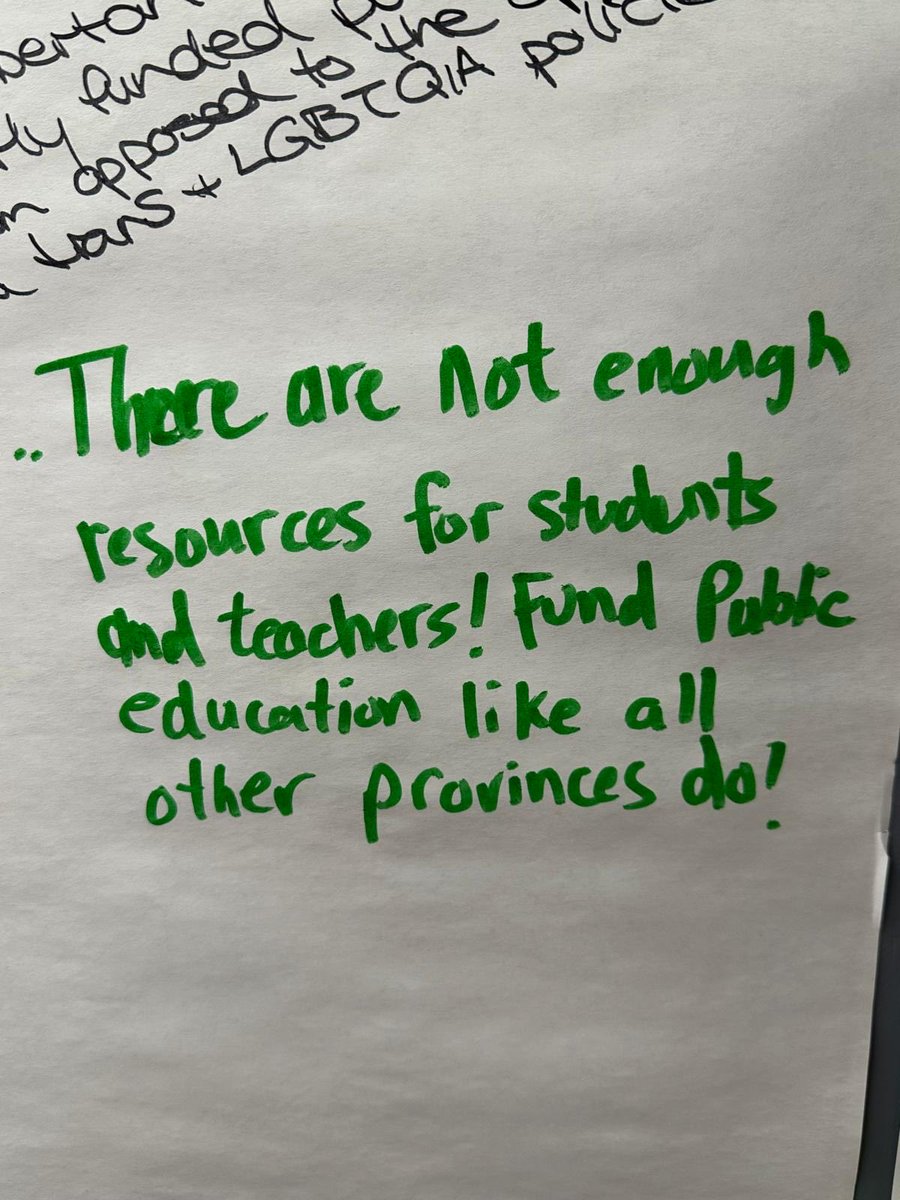 funded
opposed to the
trans + LGBTQIA policie
..There are not enough
resources for students
and teachers! Fund Public
education like all
other provinces do!